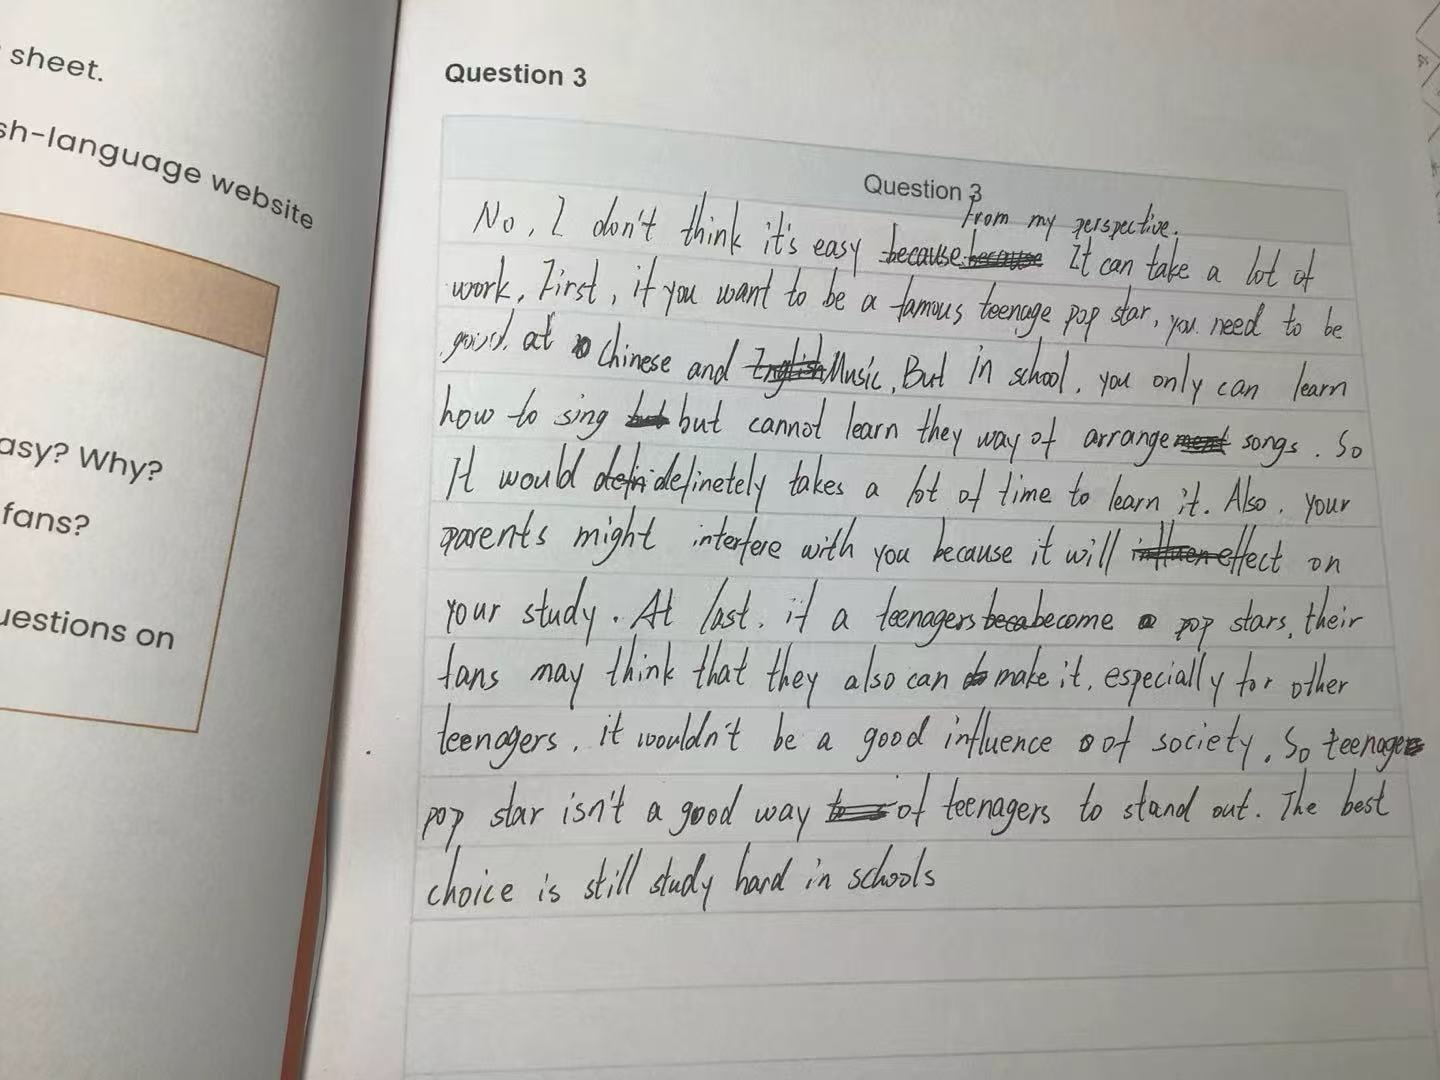 sheet.
sh-language website
asy? Why?
fans?
uestions on
Question 3
Question 3
From my perspective.
No, I don't think it's easy because because It can take a lot of
work, First, if you want to be a famous teenage pop star, you need to be
good at Chinese and English Music, But in school, you only can learn
how to sing but but cannot learn they way of arrangement songs. So
It would defin definetely takes a lot of time to learn it. Also, your
parents might interfere with you because it will influen effect on
your study. At last, if a teenagers beca become a pop stars, their
fans may think that they also can do make it, especially for other
teenagers, it wouldn't be a good influence of society, So teenage
pop star isn't a good way of teenagers to stand out. The best
choice is still study hard in schools